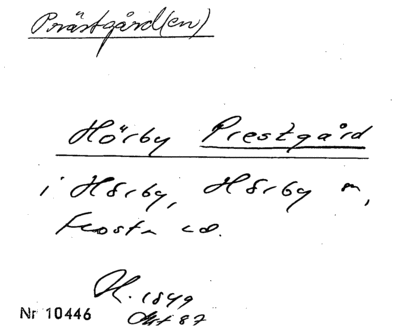 Prästgård(en)
Hörby Prestgård
i Hörby, Hörby m,
Frosta
H. 1849
Akt 87
Nr 10446